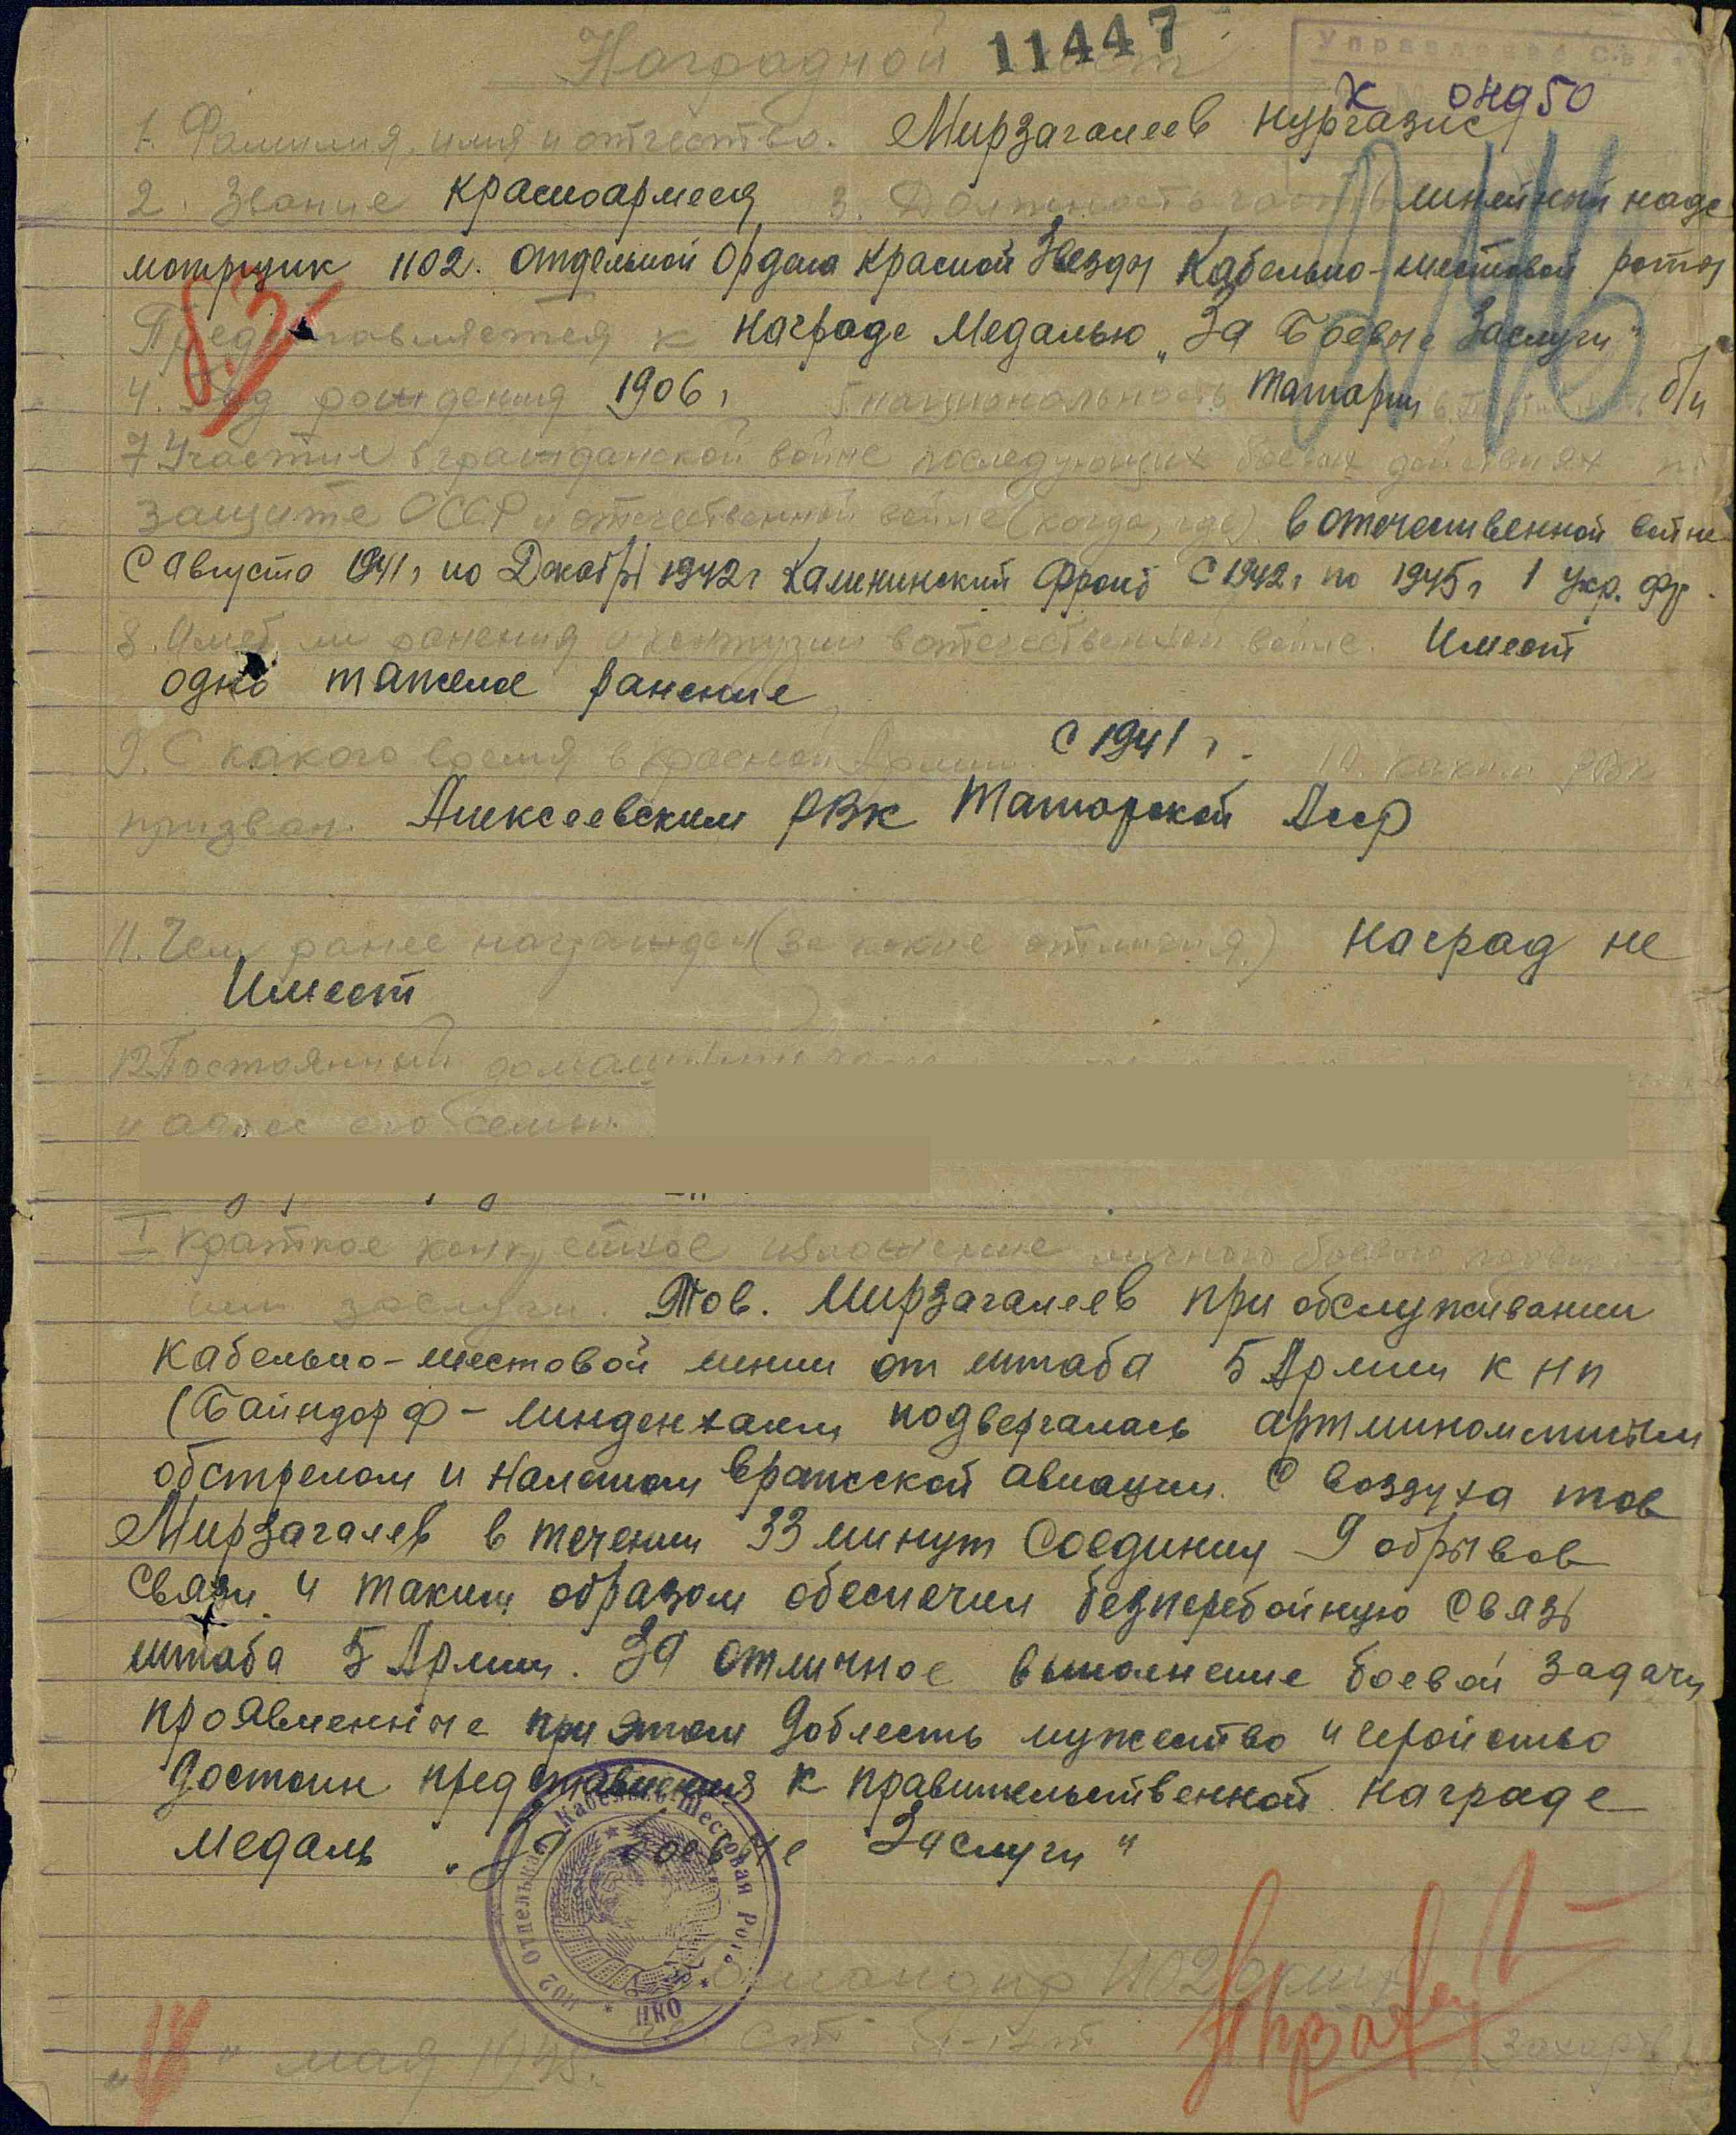 Наградной лист
11447
Управление
к ОНД 50
1. Фамилия, имя и отчество. Мирзагалеев Нургазис
2. Звание Красноармеец 3. Должность часть линейный надс
мотрщик 1102. отдельной Ордена Красной Звезды Кабельно-шестовой роты
Представляется к награде Медалью „За Боевые Заслуги"
4. Год рождения 1906 г. 5 национальность татарин 6. б/п
7 Участие в гражданской войне последующих боевых действиях по
защите СССР и отечественной войне (когда, где) в отечественной войне
С Августа 1941 г по Декабрь 1942 г Калининский Фронт С 1942 г по 1945 г 1 Укр. Фр.
8. Имеет ли ранения и контузии в отечественной войне. Имеет
одно тяжелое ранение
9. С какого время в красной Армии. С 1941 г. 10. Каким РВК
призван. Алексеевским РВК Татарской Асср
11. Чем ранее награжден (за какие отличия) Наград не
Имеет
12 Постоянный домашний
и адрес его семьи.
I краткое конкретное изложение личного боевого подвига
или заслуги. Тов. Мирзагалеев при обслуживании
Кабельно-шестовой линии от штаба 5 Армии к НП
(Байндорф - Линденхаин подвергалась артминометным
обстрелом и налетом вражеской авиации. С воздуха тов
Мирзагалев в течении 33 минут Соединил 9 обрывов
Связи и таким образом обеспечил безперебойную Связь
штаба 5 Армии. За отличное выполнение боевой задачи
проявленные при этом доблесть мужество и геройство
достоин представления к правительственной награде
медаль „За Боевые Заслуги"
1102 Отдельная Кабельно-Шестовая Рота
НКО
Командир 1102 ОКШР
ст л-нт Захаров
" мая 1945.